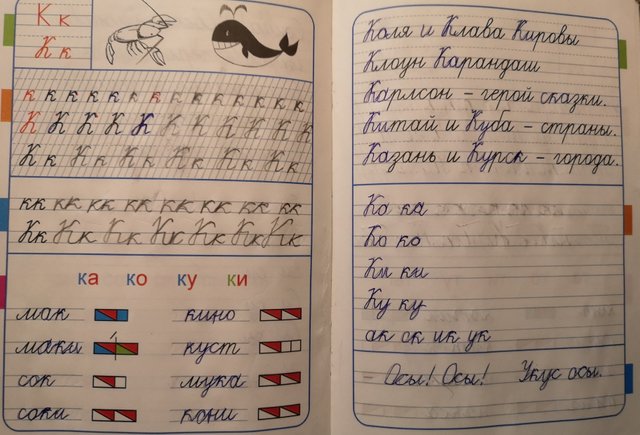 К к
К к
к к к к к к к к к к к к к к
К К К К К К К К К К К
К к К к К к К к К к К к К к
кк кк кк кк кк кк кк кк
Кк Кк Кк Кк Кк Кк Кк
ка ко ку ки
мак кино
маки куст
сок мука
соки кони
Коля и Клава Кировы
Клоун Карандаш
Карлсон – герой сказки.
Китай и Куба – страны.
Казань и Курск – города.
Ко ка
Ко ко
Ки ки
Ку ку
ак ок ик ук
– Осы! Осы! Укус осы.